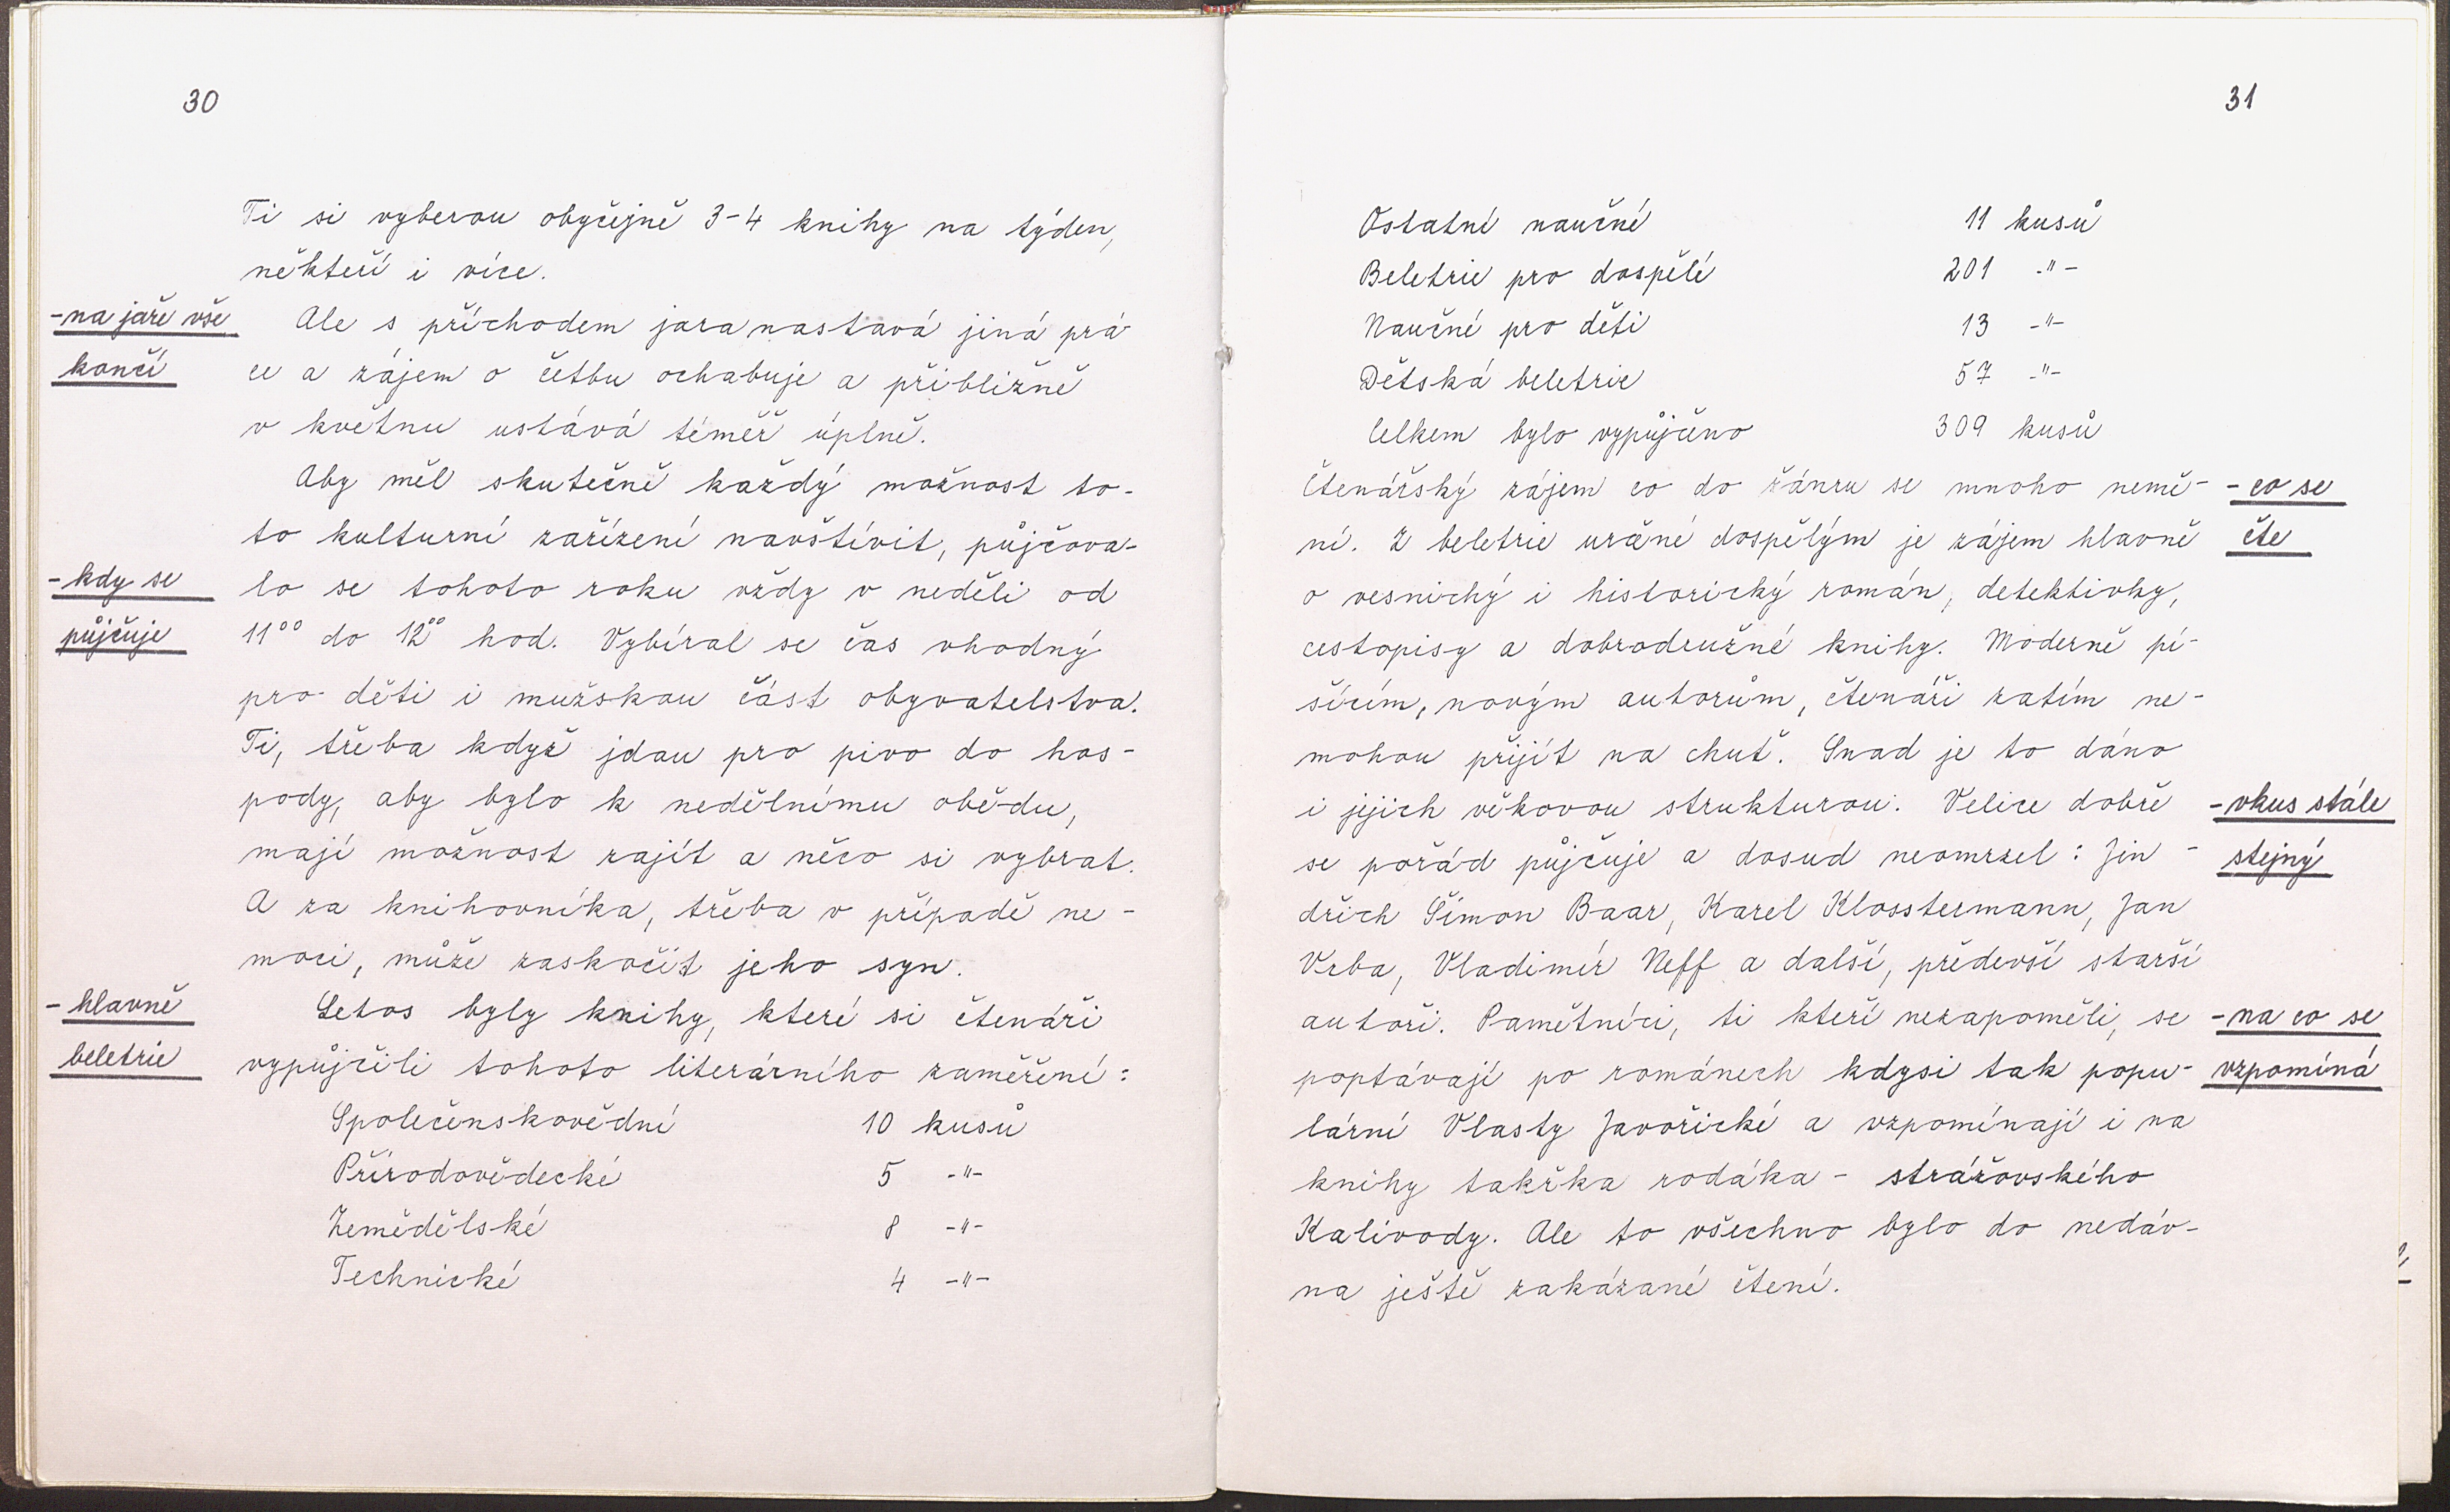 30
Ti si vyberou obyčejně 3-4 knihy na týden,
někteří i více.
-na jaře vše
končí
Ale s příchodem jara nastává jiná prá-
ce a zájem o četbu ochabuje a přibližně
v květnu ustává téměř úplně.
Aby měl skutečně každý možnost to-
to kulturní zařízení navštívit, půjčova-
-kdy se
půjčuje
lo se tohoto roku vždy v neděli od
11⁰⁰ do 12⁰⁰ hod. Vybíral se čas vhodný
pro děti i mužskou část obyvatelstva.
Ti, třeba když jdou pro pivo do hos-
pody, aby bylo k nedělnímu obědu,
mají možnost zajít a něco si vybrat.
A za knihovníka, třeba v případě ne-
moci, může zaskočit jeho syn.
-hlavně
beletrie
Letos byly knihy, které si čtenáři
vypůjčili tohoto literárního zaměření:
Společenskovědní 10 kusů
Přírodovědecké 5 -"-
Zemědělské 8 -"-
Technické 4 -"-
31
Ostatní naučné 11 kusů
Beletrie pro dospělé 201 -"-
Naučné pro děti 13 -"-
Dětská beletrie 57 -"-
Celkem bylo vypůjčeno 309 kusů
Čtenářský zájem co do žánru se mnoho nemě-
ní. Z beletrie určené dospělým je zájem hlavně
-co se
čte
o vesnický i historický román, detektivky,
cestopisy a dobrodružné knihy. Moderně pí-
šícím, novým autorům, čtenáři zatím ne-
mohou přijít na chuť. Snad je to dáno
i jejich věkovou strukturou. Velice dobře
se pořád půjčuje a dosud neomrzel: Jin-
-vkus stále
stejný
dřich Šimon Baar, Karel Klosstermann, Jan
Vrba, Vladimír Neff a další, předevší starší
autoři. Pamětníci, ti kteří nezapoměli, se
-na co se
vzpomíná
poptávají po románech kdysi tak popu-
lární Vlasty Javořické a vzpomínají i na
knihy takřka rodáka - strážovského
Kalivody. Ale to všechno bylo do nedáv-
na ještě zakázané čtení.